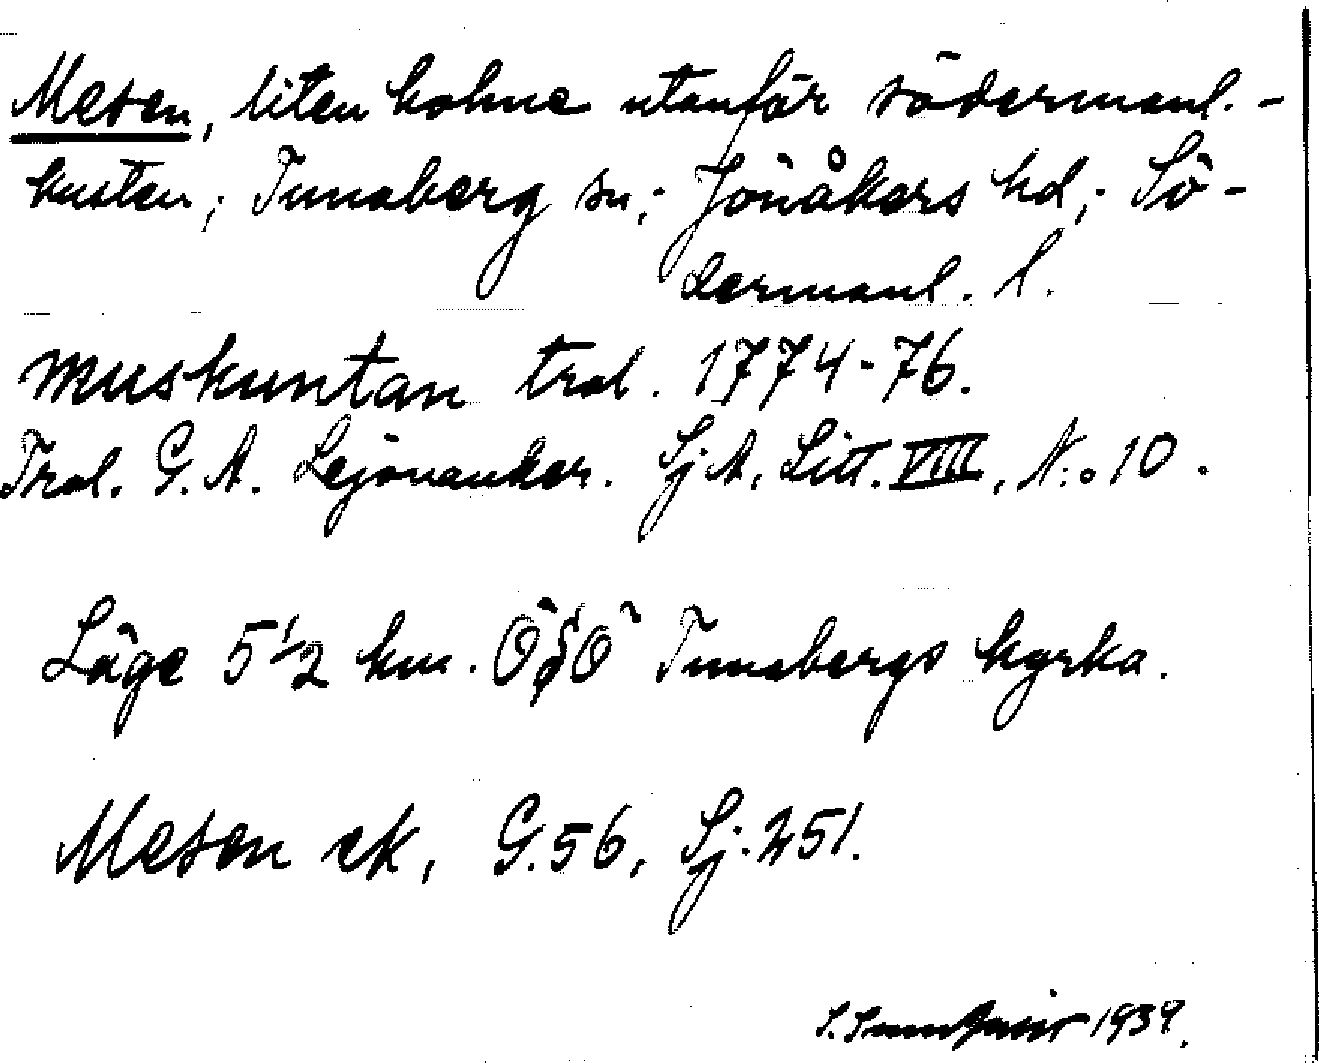 Mesen, liten holme utanför södermanl.-
kusten; Tunaberg sn; Jönåkers hd; Sö-
dermanl. l.
Muskuntan trol. 1774-76.
Trol. G. A. Lejonancker. Sj. A. Litt. VIII, N:o 10.
Läge 5 1/2 km. OSO Tunabergs kyrka.
Mesen ek, G.56, Sj.251.
1939.